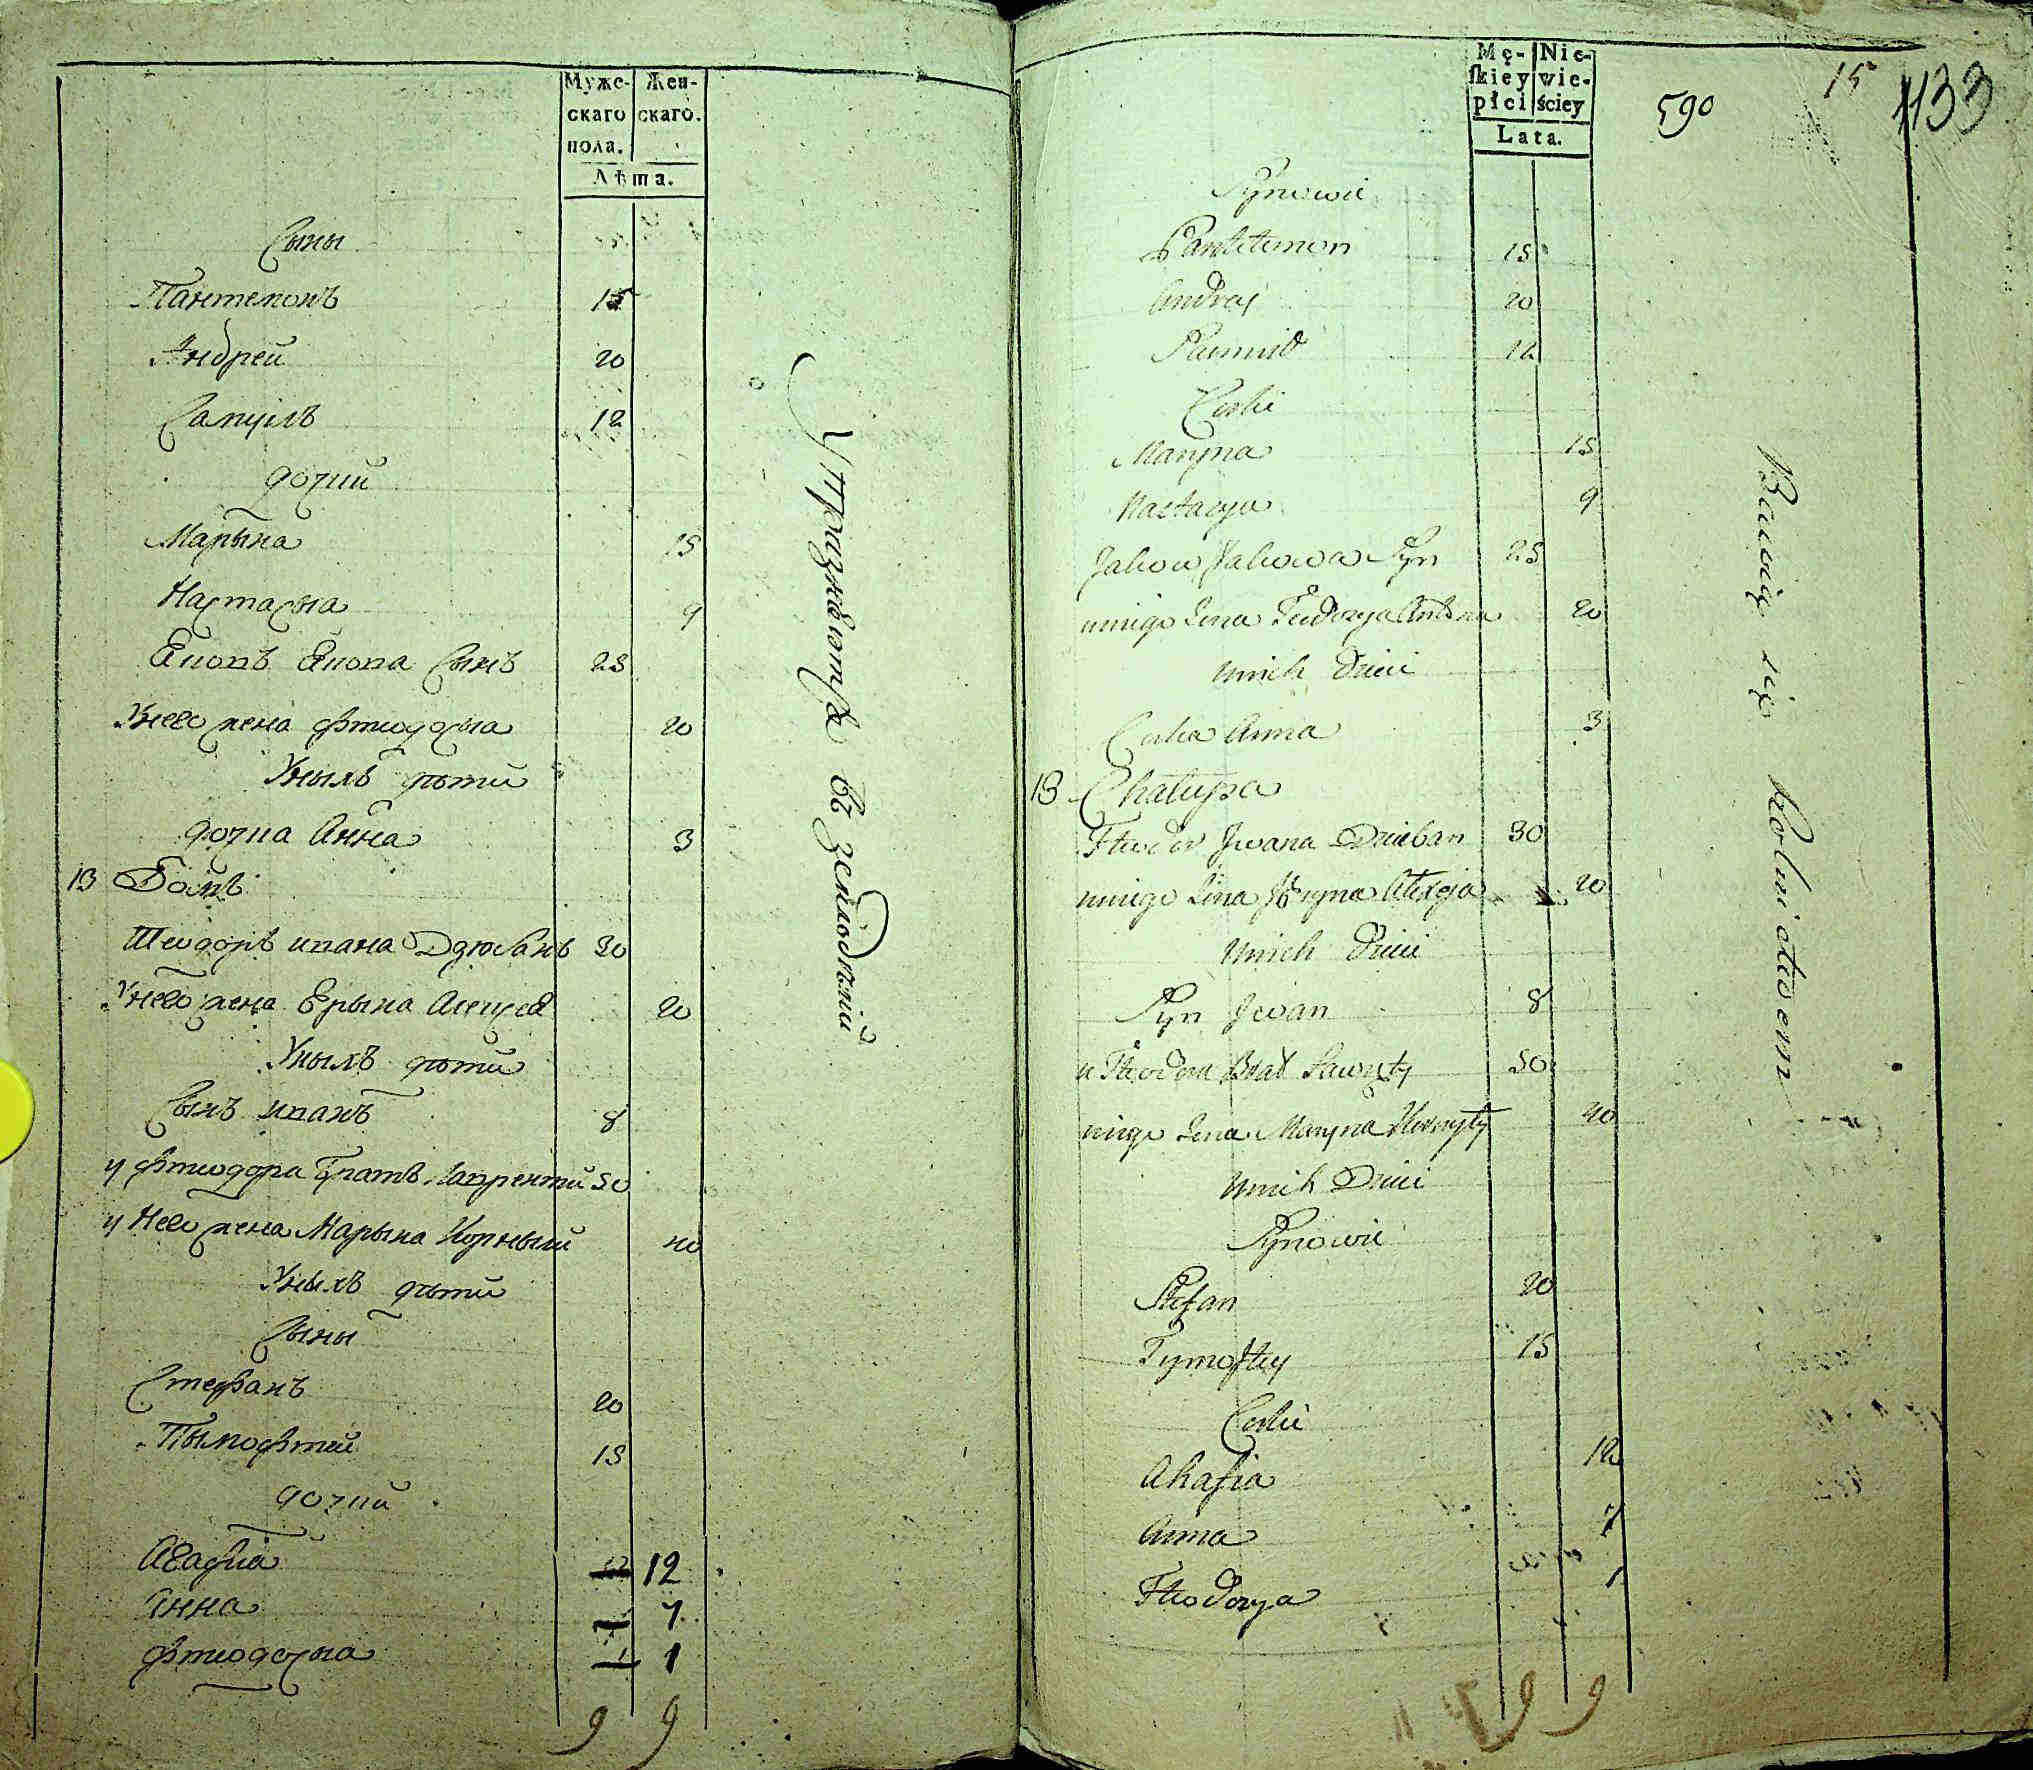 Муже-
скаго
пола.
Жен-
скаго.
Лѣта.
Сыны
Пантемонъ 15
Андрей 20
Самуилъ 12
дочки
Марына 15
Настасыа 9
Яковъ Якова Сынъ 25
Унего жена Фтиодосыа 20
Уныхъ дѣти
дочка Анна 3
13 Домъ
Фтеодоръ ивана Дзюбанъ 30
Унего жена Ерына Алексея 20
Уныхъ дѣти
Сынъ иванъ 8
у Фтиодора Братъ Лаврентий 50
у Него жена Марына Корныли 40
Уныхъ дѣти
Сыны
Стефанъ 20
Тымофтей 15
дочки
Агафиа 12
Анна 7
Фтиодосыа 1
9 9
Упражняются въ земледелии
Mę-
skiey
płci
Nie-
wie-
ściey
Lata.
590
15
133
Synowie
Pantelemon 15
Andrej 20
Samuid 12
Corki
Maryna 15
Nastasya 9
Jakow Jakowa Syn 25
uniego Zona Teodozya Antona 20
unich Dzieci
Corka Anna 3
13 Chałupa
Fteodor Jwana Dziuban 30
uniego Zona Jryna Alexeja 20
unich Dzieci
Syn Jwan 8
u Fteodora Brat Ławryty 50
uniego Zona Maryna Korniły 40
unich Dzieci
Synowie
Stefan 20
Tymoftey 15
Corki
Ahafia 12
Anna 7
Fteodozya 1
9 9
Bawią się Rolnictwem